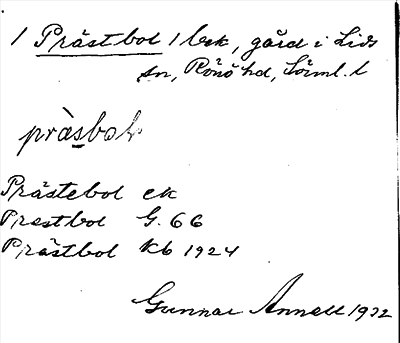 1 Prästbol 1 bek, gård i Lids
sn, Rönö hd, Sörml. l
pràsbol
Prästebol ek
Prestbol G. 66
Prästbol kb 1924
Gunnar Annell 1932